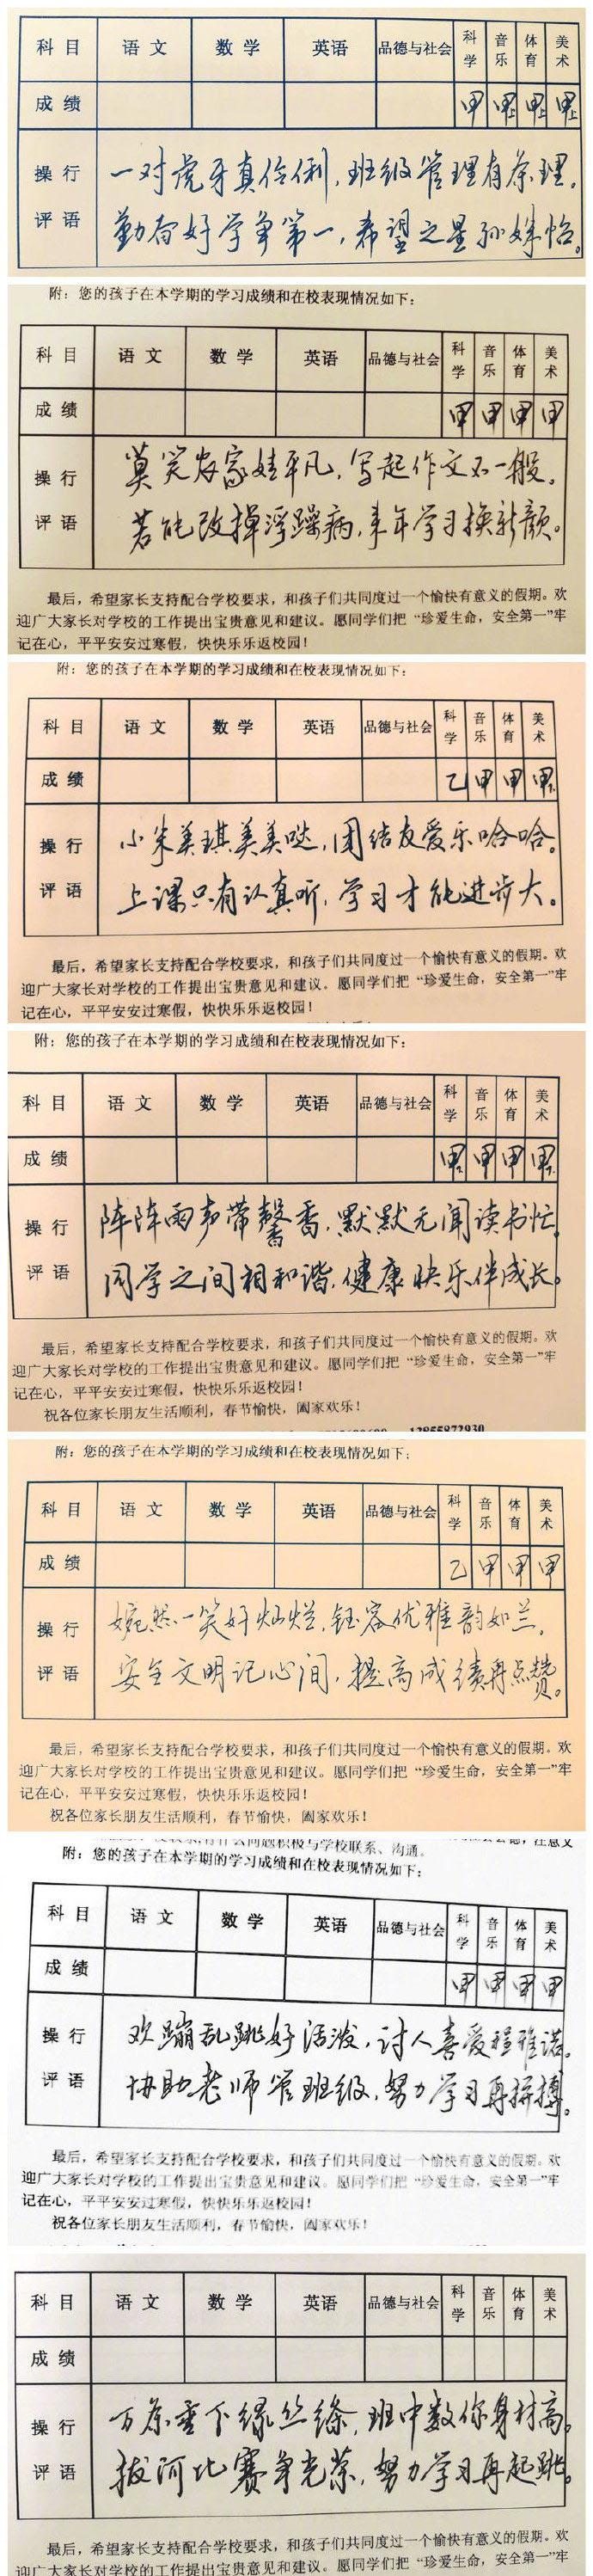 科目 语文 数学 英语 品德与社会 科学 音乐 体育 美术
成绩 甲 甲上 甲上 甲上
操行评语
一对虎牙真伶俐，班级管理有条理。
勤奋好学争第一，希望之星孙姝怡。
附：您的孩子在本学期的学习成绩和在校表现情况如下：
科目 语文 数学 英语 品德与社会 科学 音乐 体育 美术
成绩 甲 甲 甲 甲
操行评语
莫笑农家娃平凡，写起作文不一般。
若能改掉浮躁病，来年学习换新颜。
最后，希望家长支持配合学校要求，和孩子们共同度过一个愉快有意义的假期。欢
迎广大家长对学校的工作提出宝贵意见和建议。愿同学们把“珍爱生命，安全第一”牢
记在心，平平安安过寒假，快快乐乐返校园！
附：您的孩子在本学期的学习成绩和在校表现情况如下：
科目 语文 数学 英语 品德与社会 科学 音乐 体育 美术
成绩 乙 甲 甲 甲
操行评语
小朱美琪美美哒，团结友爱乐哈哈。
上课只有认真听，学习才能进步大。
最后，希望家长支持配合学校要求，和孩子们共同度过一个愉快有意义的假期。欢
迎广大家长对学校的工作提出宝贵意见和建议。愿同学们把“珍爱生命，安全第一”牢
记在心，平平安安过寒假，快快乐乐返校园！
附：您的孩子在本学期的学习成绩和在校表现情况如下：
科目 语文 数学 英语 品德与社会 科学 音乐 体育 美术
成绩 甲 甲 甲 甲
操行评语
阵阵雨声带馨香，默默无闻读书忙。
同学之间相和谐，健康快乐伴成长。
最后，希望家长支持配合学校要求，和孩子们共同度过一个愉快有意义的假期。欢
迎广大家长对学校的工作提出宝贵意见和建议。愿同学们把“珍爱生命，安全第一”牢
记在心，平平安安过寒假，快快乐乐返校园！
祝各位家长朋友生活顺利，春节愉快，阖家欢乐！
附：您的孩子在本学期的学习成绩和在校表现情况如下：
科目 语文 数学 英语 品德与社会 科学 音乐 体育 美术
成绩 乙 甲 甲 甲
操行评语
婉然一笑好灿烂，钰容优雅韵如兰。
安全文明记心间，提高成绩再点赞。
最后，希望家长支持配合学校要求，和孩子们共同度过一个愉快有意义的假期。欢
迎广大家长对学校的工作提出宝贵意见和建议。愿同学们把“珍爱生命，安全第一”牢
记在心，平平安安过寒假，快快乐乐返校园！
祝各位家长朋友生活顺利，春节愉快，阖家欢乐！
附：您的孩子在本学期的学习成绩和在校表现情况如下：
科目 语文 数学 英语 品德与社会 科学 音乐 体育 美术
成绩 甲 甲 甲 甲
操行评语
欢蹦乱跳好活泼，讨人喜爱程雅诺。
协助老师管班级，努力学习再拼搏。
最后，希望家长支持配合学校要求，和孩子们共同度过一个愉快有意义的假期。欢
迎广大家长对学校的工作提出宝贵意见和建议。愿同学们把“珍爱生命，安全第一”牢
记在心，平平安安过寒假，快快乐乐返校园！
祝各位家长朋友生活顺利，春节愉快，阖家欢乐！
科目 语文 数学 英语 品德与社会 科学 音乐 体育 美术
成绩
操行评语
万条垂下绿丝绦，班中数你身材高。
拔河比赛争光荣，努力学习再起跳。
最后，希望家长支持配合学校要求，和孩子们共同度过一个愉快有意义的假期。欢
迎广大家长对学校的工作提出宝贵意见和建议。愿同学们把“珍爱生命，安全第一”牢